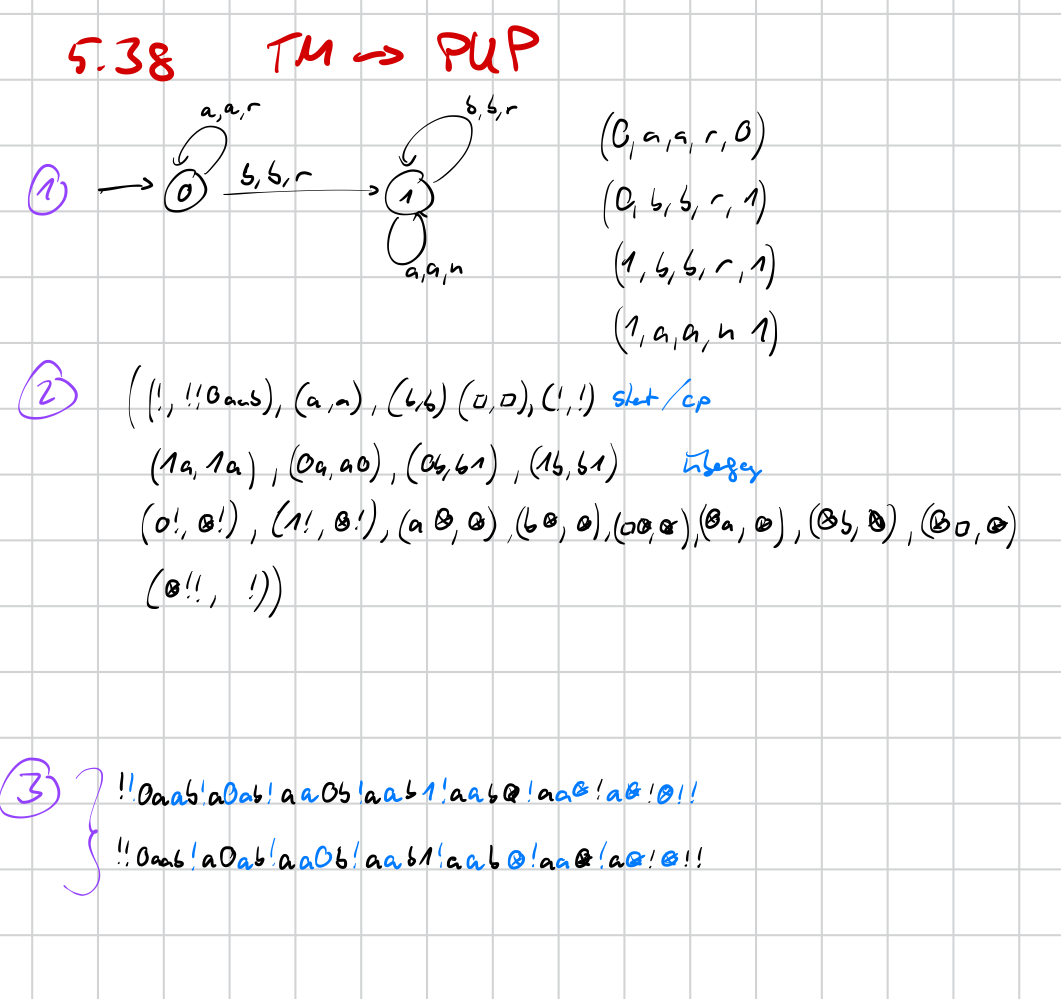 5.38 TM ↔ PKP
①
a,a,r
0
b,b,r
1
b,b,r
a,a,n
(0,a,a,r,0)
(0,b,b,r,1)
(1,b,b,r,1)
(1,a,a,n 1)
② ((!, !!0aab), (a,a), (b,b) (□,□), (!,!) start/cp
(1a,1a), (0a,a0), (0b,b1), (1b,b1)
(0!, ⊗!), (1!, ⊗!), (a⊗,⊗), (b⊗,⊗), (□⊗,⊗), (⊗a,⊗), (⊗b,⊗), (⊗□,⊗)
(⊗!!, !))
③ !!0aab!a0ab!aa0b!aab1!aab⊗!aa⊗!a⊗!⊗!!
!!0aab!a0ab!aa0b!aab1!aab⊗!aa⊗!a⊗!⊗!!